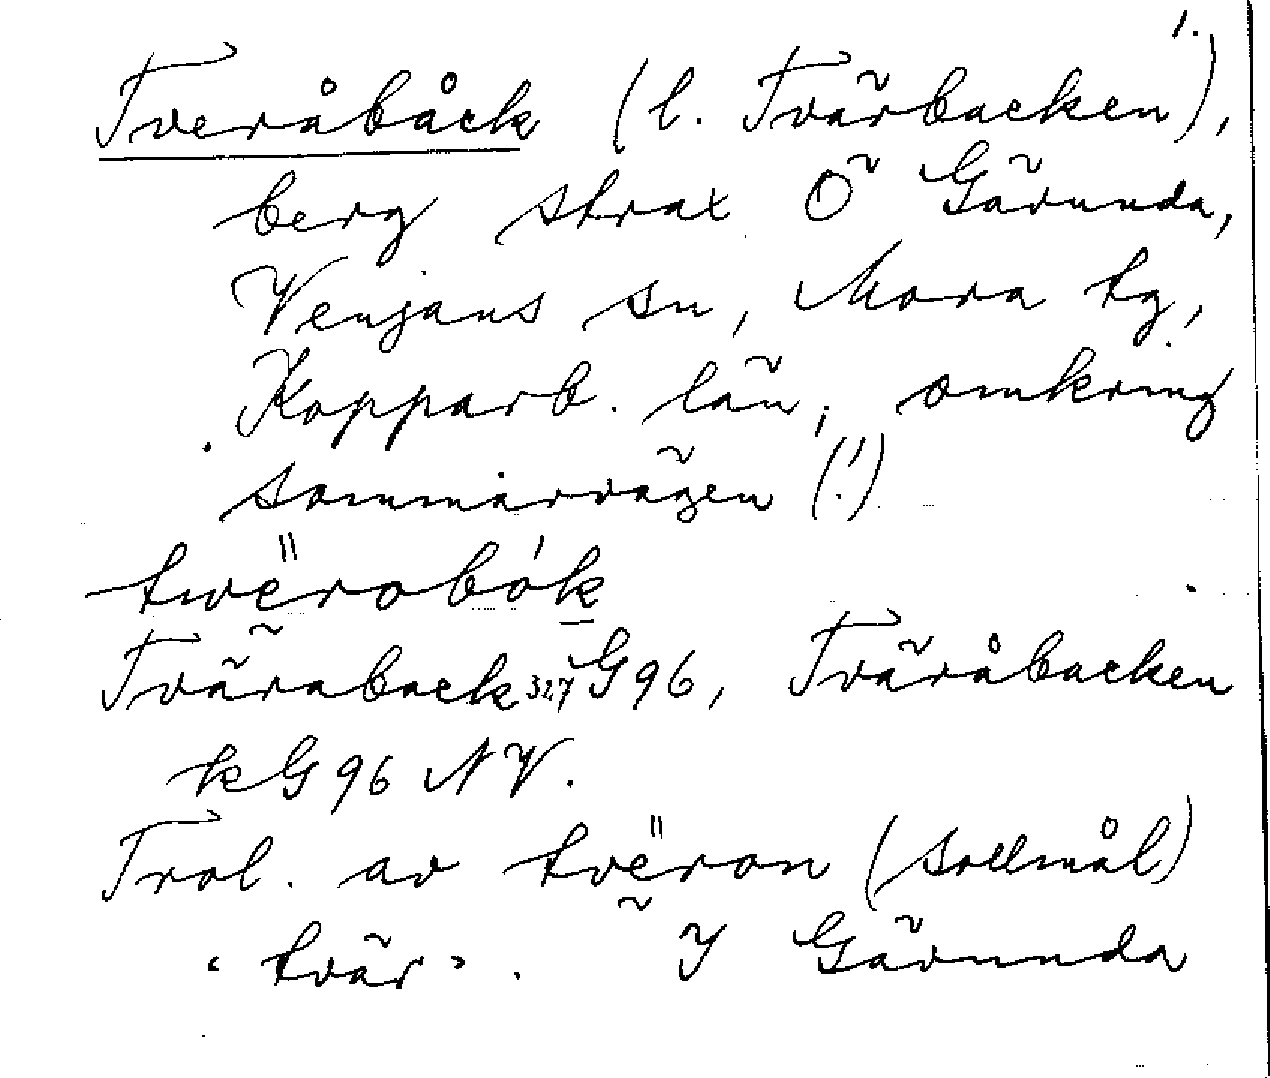 1.
Tveråbåck (l. Tvärbacken),
berg strax Ö Gävunda,
Venjans sn, Mora tg,
Kopparb. län, omkring
sommarvägen (!)
twërobók
Tväraback 327 G96, Tväråbacken
kG96 NV.
Trol. av tvëron (sollmål)
‘tvär’. I Gävunda